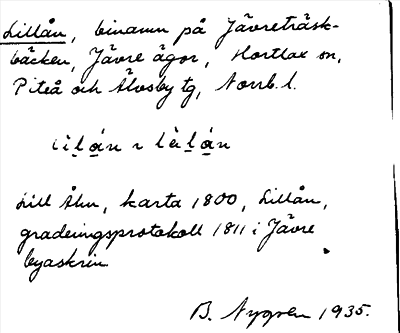 Lillån, binamn på Jävreträsk-
bäcken, Jävre ägor, Hortlax sn,
Piteå och Älvsby tg, Norrb. l.
Lill Åhn, karta 1800, Lillån,
graderingsprotokoll 1811 i Jävre
byaskrin
B. Nygren 1935.